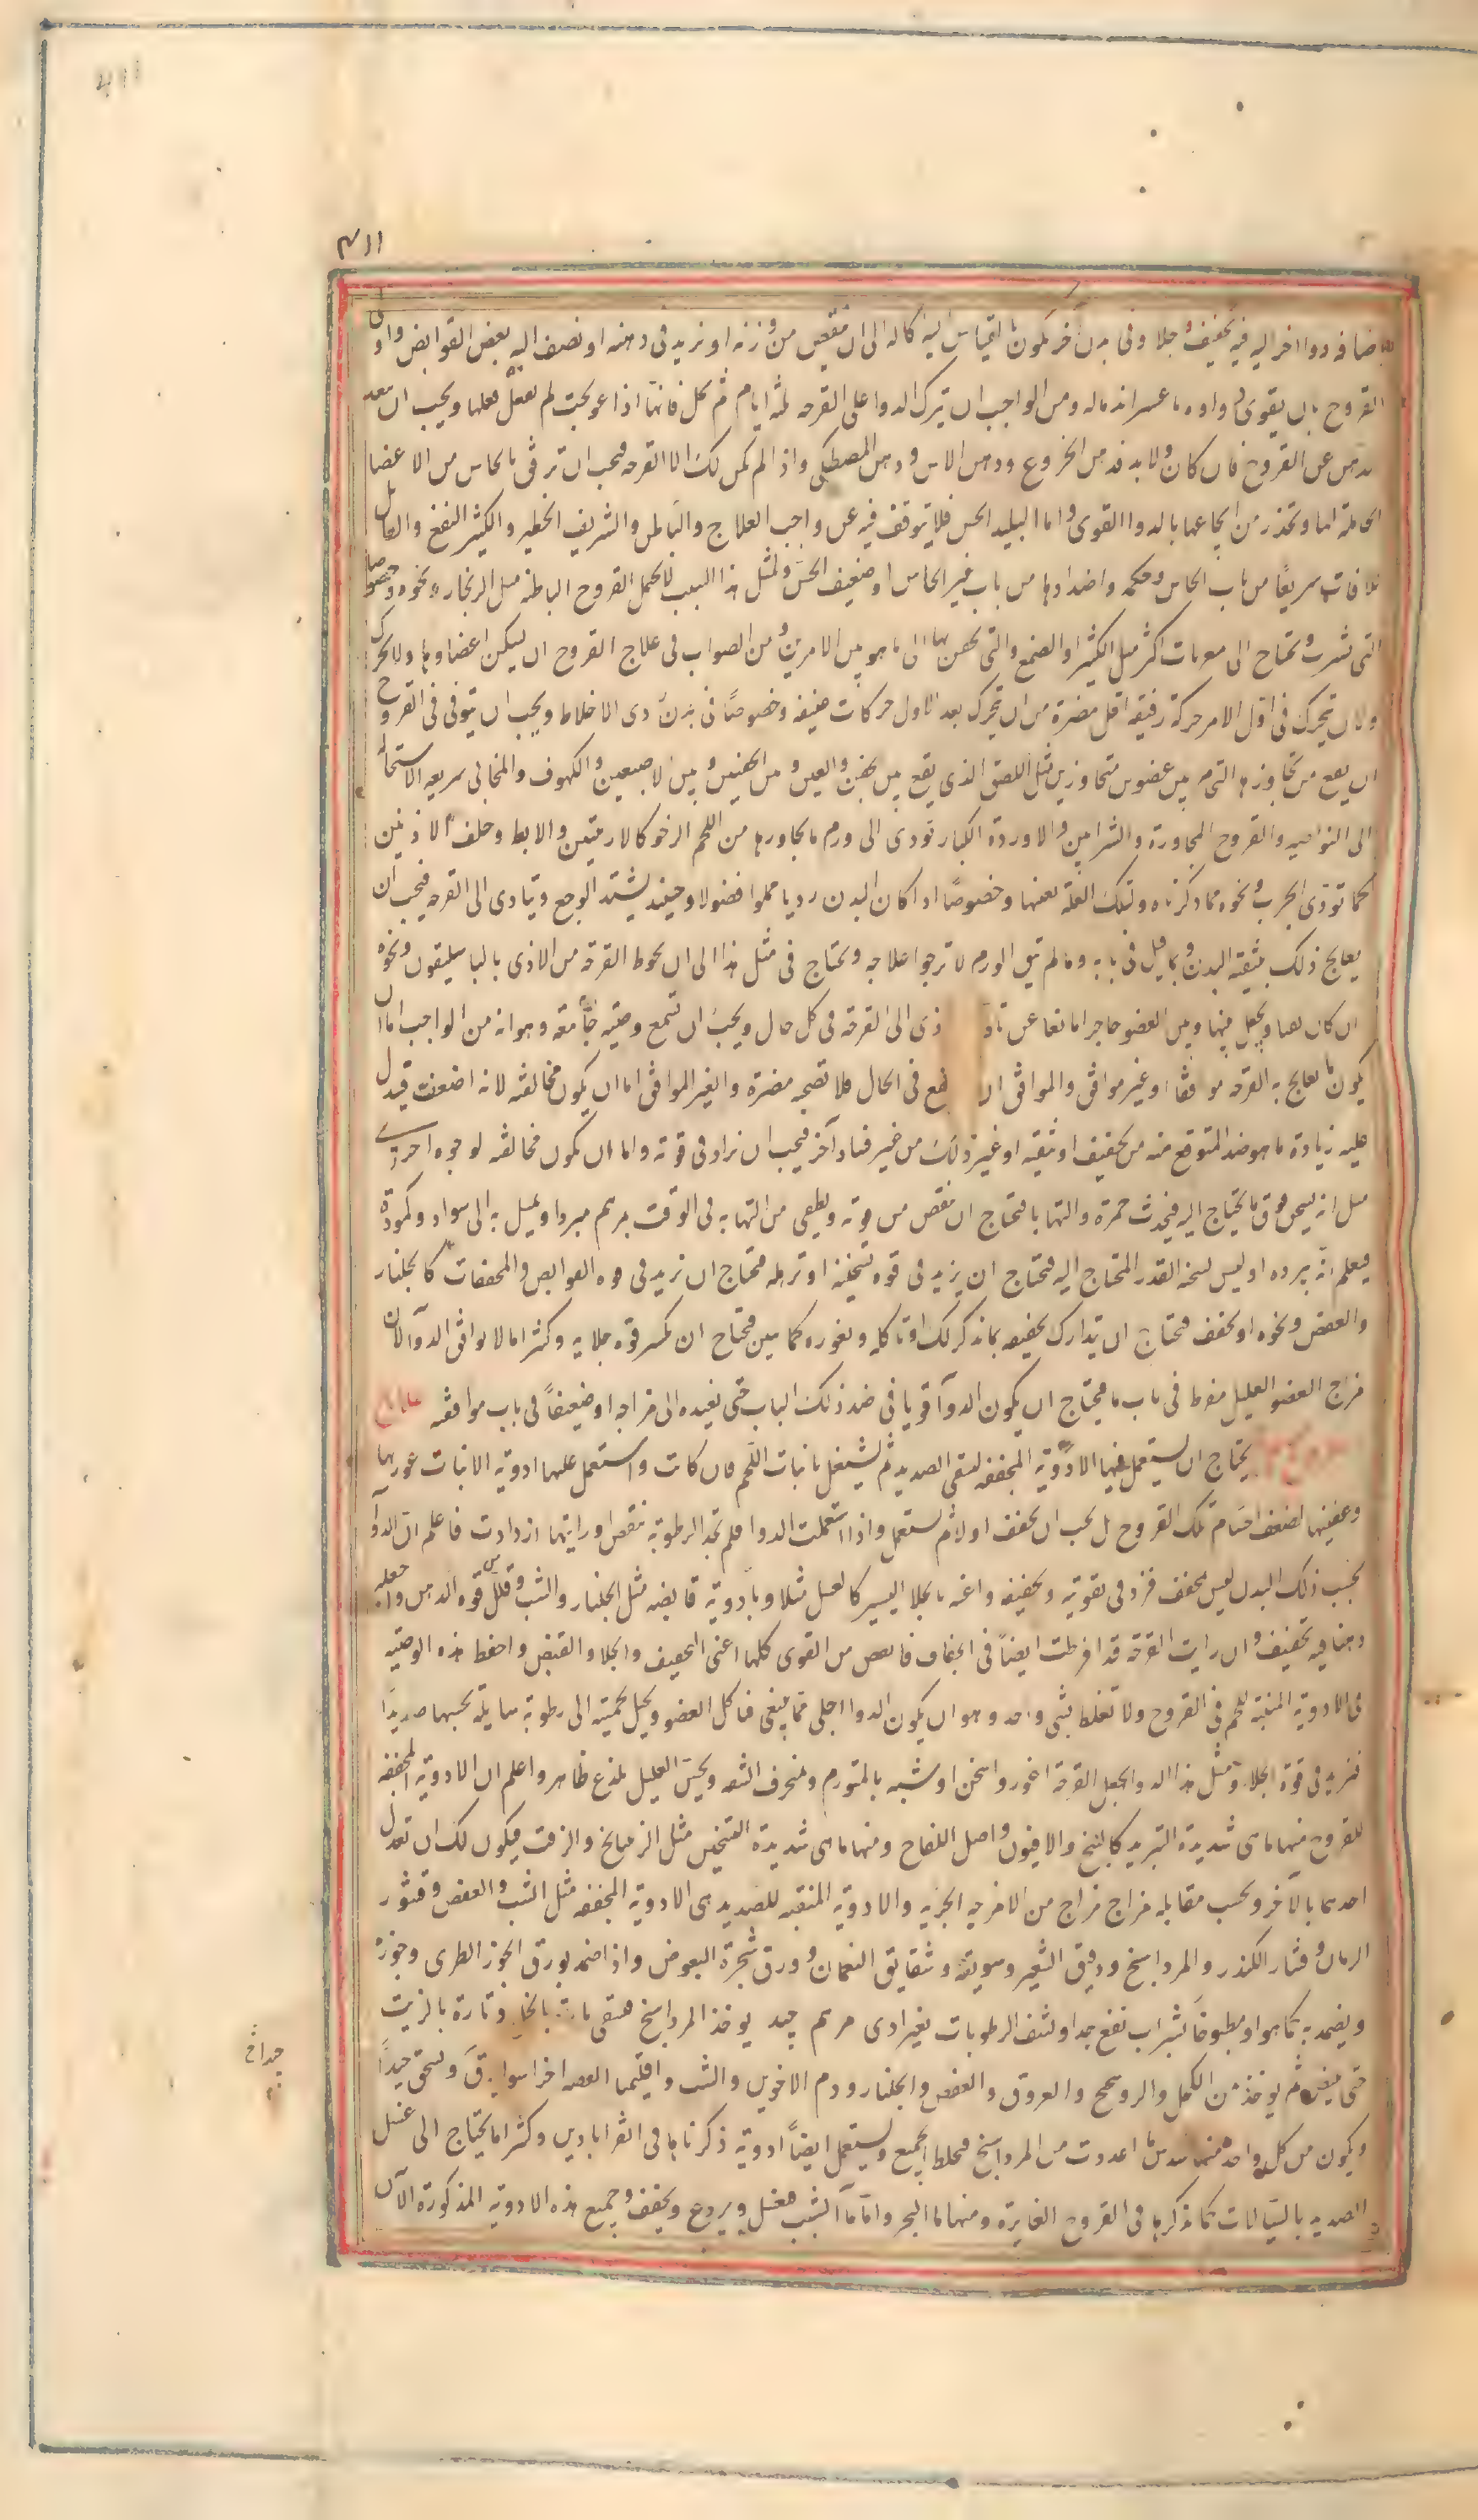 ٤١١
باضافه دوا اخر اليه فيه تجفيف وجلا وفى بدن اخر يكون بالقياس اليه اكاله الى ان تنقص من وزنه او نزيد فى دهنه او نضيف اليه بعض القوابض واولى
القروح بان يقوى دواوه ما عسر اندماله ومن الواجب ان يترك الدوا على القرحه ثلثه ايام ثم يحل فانها اذا عوجلت لم تفعل فعلها ويجب ان يبعد
الدهن عن القروح فان كان ولا بد فدهن الخروع ودهن الاس ودهن المصطكى واذا لم يكن لك الا القرحه فيجب ان ترفق بالحاس من الاعضا
الحاملة لها وتحذر من ايجاعها بالدوا القوى واما البليد الحس فلا يتوقف فيه عن واجب العلاج والباطن والشريف الخطير والكثير النفع والقابل
للافات سريعا من باب الحاس وحكمه واضدادها من باب غير الحاس او ضعيف الحس ولمثل هذا السبب لا تحتمل القروح الباطنه مثل الزنجار ونحوه وخصوصا
التى تشرب وتحتاج الى مغريات اكثر مثل الكثيرا والصمغ والتى تحقن بها الى ما هو بين الامرين ومن الصواب فى علاج القروح ان يسكن اعضاوها ولا تحرك
ولان تتحرك فى اول الامر حركة رفيقه اقل مضرة من ان تتحرك بعد الاول حركات عنيفه وخصوصا فى بدن ردى الاخلاط ويجب ان يتوقى فى القروح
ان يقع من تجاوزها التحام بين عضوين متجاورين مثل اللصق الذى يقع بين الجفن والعين وبين الجفنين وبين الاصبعين والكهوف والمخابى سريعه الاستحاله
الى النواصير والقروح المجاورة والشرايين والاوردة الكبار تودى الى ورم ما يجاورها من اللحم الرخو كالاربيتين والابط وخلف الاذنين
كما تودى الجرب ونحوه مما ذكرناه وتلك العلة بعينها وخصوصا اذا كان البدن رديا مملوا فضولا وحينئذ يشتد الوجع ويتادى الى القرحه فيجب ان
يعالج ذلك بتنقيه البدن وبما قيل فى بابه وما لم تنق الورم لا ترجوا علاجه وتحتاج فى مثل هذا الى ان تحوط القرحة من الاذى بالباسليقون ونحوه
ان كان لها ويجعل بينها وبين العضو حاجزا مانعا عن تاد ذى الى القرحه فى كل حال ويجب ان تسمع وصيه جامعة وهو انه من الواجب اما ان
يكون ما يعالج به القرحه موافقا او غير موافق والموافق ان نفع فى الحال فلا تصحبه مضرة والغير الموافق اما ان يكون مخالفه لانه اضعف فيدل
عليه زيادة ما هو ضد المتوقع منه من تجفيف او تنقيه او غير ذلك من غير فساد آخر فيجب ان نزاد فى قوته واما ان يكون مخالفه لوجوه اخرى
مثل انه يسخن فوق ما يحتاج اليه فيحدث حمرة والتهابا فتحتاج ان تنقص من قوته وتطفى من التهابه فى الوقت بمرهم مبرد او يميل به الى سواد وكمودة
فيعلم انه يبرده او ليس يسخنه القدر المحتاج اليه فتحتاج ان يزيد فى قوه تسخينه او ترهله فتحتاج ان تزيد فى قوه القوابض والمجففات كالجلنار
والعفص ونحوه او تجفف فتحتاج ان تتدارك تجفيفه بما نذكر لك او تاكله وتغوره كما تبين فتحتاج ان تكسر قوه جلايه وكثيرا ما لا يوافق الدوآ لان
مزاج العضو العليل مفرط فى باب ما فيحتاج ان يكون الدوآ قويا فى ضد ذلك الباب حتى يعيده الى مزاجه او ضعيفا فى باب موافقه
يحتاج ان يستعمل فيها الادوية المجففه لتنقى الصديد ثم يشتغل بانبات اللحم فان كانت واستعمل عليها ادوية الانبات عوربها
وعفنها لضعف اجسام تلك القروح بل يجب ان يجفف اولا ثم يستعمل واذا استعملت الدوا فلم تجد الرطوبة تنقص او رايتها ازدادت فاعلم ان الدوآ
بحسب ذلك البدن ليس بمجفف فزد فى تقويته وتجفيفه واعنه بالجلا اليسير كالعسل مثلا وبادوية قابضه مثل الجلنار والشب وقلل من قوه الدهن واجعله
دهنا فيه تجفيف وان رايت القرحه قد افرطت ايضا فى الجفاف فانقص من القوى كلها اعنى التجفيف والجلا والقبض واحفظ هذه الوصيه
فى الادوية المنبتة للحم فى القروح ولا تغلط بشى واحد وهو ان يكون الدوا اجلى مما ينبغى فياكل العضو ويحيل لحميته الى رطوبة سايلة تحسبها صديدا
فتزيد فى قوة الجلا ومثل هذا الدوا يجعل القرحة اغور واسخن او شبه بالمتورم ومنحرف الشفه ويحس العليل بلذع ظاهر واعلم ان الادوية المجففه
للقروح منها ما هى شديدة التبريد كالبنج والافيون واصل اللفاح ومنها ما هى شديدة التسخين مثل الزفت ليكون لك ان تعدل
احدهما بالآخر وبحسب مقابله مزاج مزاج من الامزجه الجزيه والادوية المنقيه للصديد هى الادوية المجففه مثل الشب والعفص وقشور
الرمان وقشار الكندر والمرداسنج ودقيق الشعير وسويقه وشقايق النعمان وورق شجرة البعوض واذا ضمد بورق الجوز الطرى وجوزه
ويضمد به كما هو او مطبوخا بشراب نفع جدا ونشف الرطوبات بغير اذى مرهم جيد يوخذ المرداسنج فيسقى تارة بالخل وتارة بالزيت
حتى يبيض ثم يوخذ من الكحل والروسختج والعروق والعفص والجلنار ودم الاخوين والشب واقليميا الفضه اجزا سوا يدق ويسحق جيدا
ويكون من كل واحد منها سدس ما اعددت من المرداسنج فيخلط الجميع ويستعمل ايضا ادوية ذكرناها فى القراباذين وكثيرا ما يحتاج الى غسل
الصديد بالسيالات كما نذكرها فى القروح الغايرة ومنها ما البحر واما ما الشب فيغسل ويردع ويجفف وجميع هذه الادوية المذكورة الآن